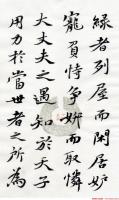 綠者列屋而閑居妒
寵負恃爭妍而取憐
大丈夫之遇知於天子
用力於當世者之所為